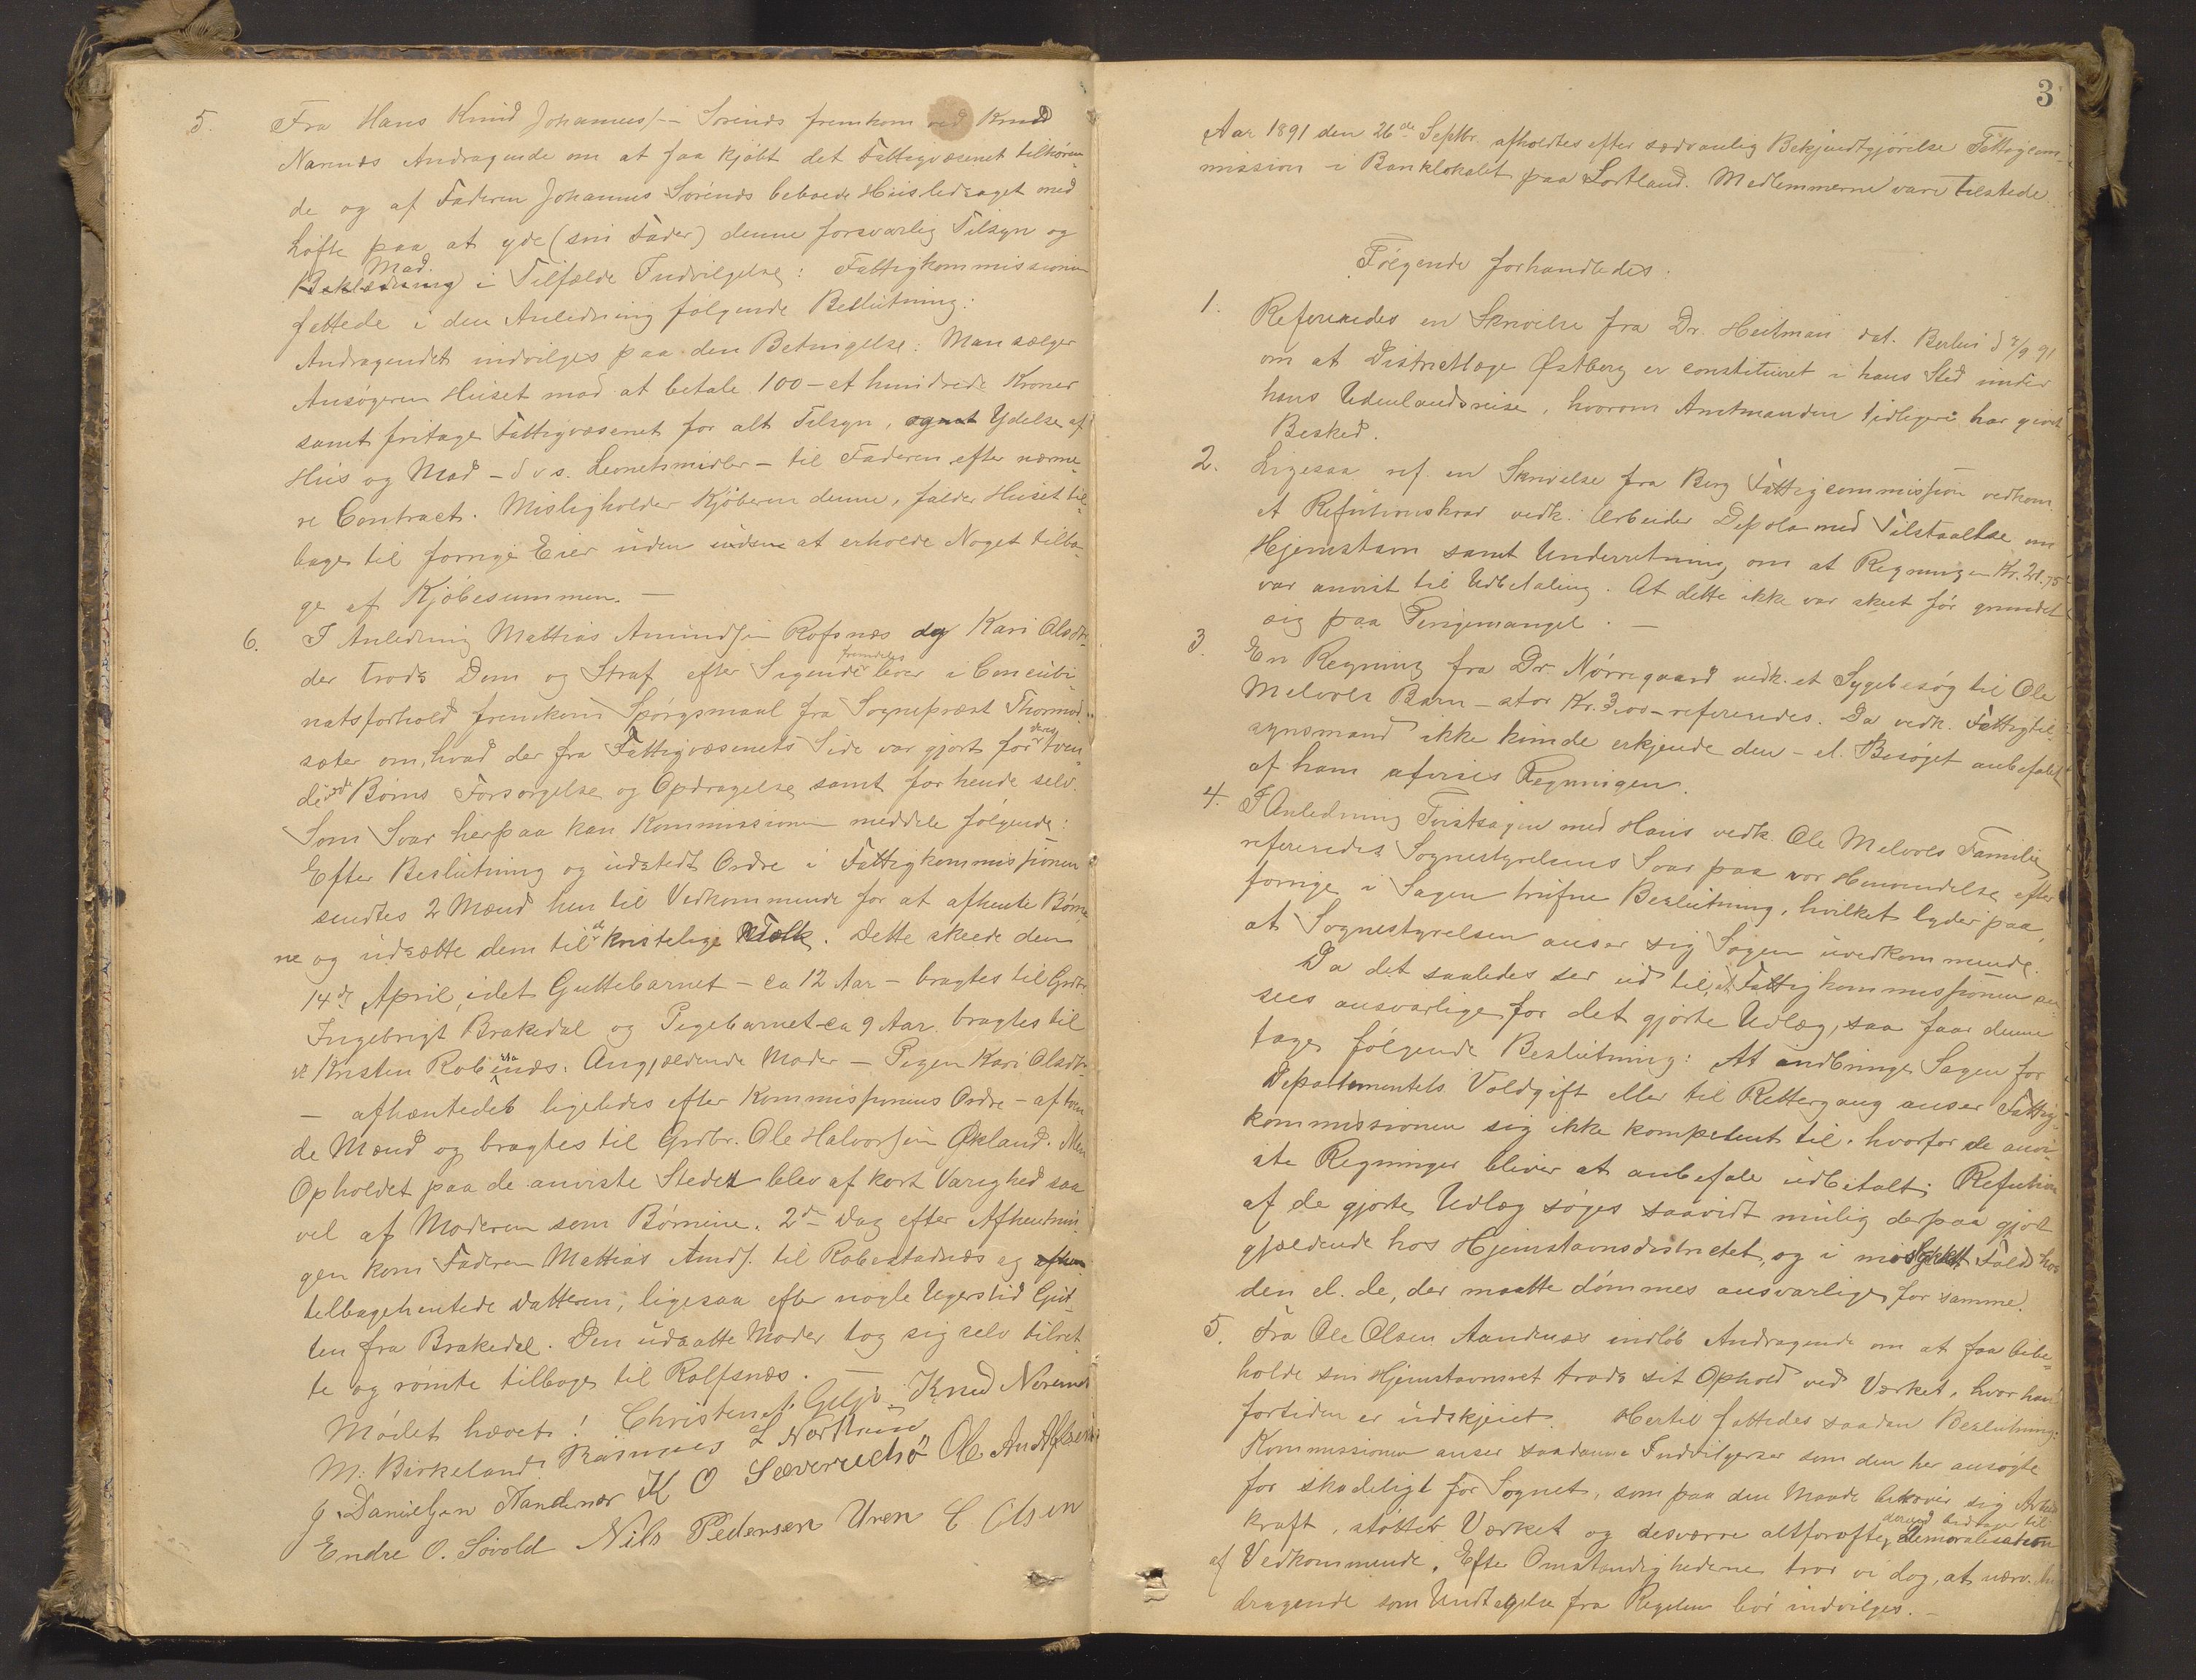 5. Fra Hans Knud Johannes/-- Sørends fremkom ved Knud
Narenæs Andragende om at faa kjøbt det Fattigvæsenet tilhøren¬
de og af Faderen Johannes Sørends beboede Huis ledsaget med
Løfte paa at yde (sin Fader) denne forsvarlig Tilsyn og
Mad.
Beklædning i Tilfælde Indvilgelse: Fattigkommissionen
fattede i den Anledning følgende Beslutning:
Andragendet indvilges paa den Betingelse: Man sælger
Ansøgeren Huset mod at betale 100 - et hundrede Kroner
samt fritage Fattigvæsenet for alt Tilsyn, Ydelse af
Hus og Mad - d v s. Levnetsmidler - til Faderen efter nærme¬
re Contract. Misligholder Kjøberen denne, falder Huset til¬
bage til forrige Eier uden at erholde Noget tilba¬
ge af Kjøbesummen. -
6. I Anledning Mathias Amundsen Rofsnæs og Kari Olsdtr.
fremdeles
der trods Dom og Straf efter Sigende lever i Concubi¬
natsforhold fremkom Spørgsmaal fra Sognepræst Thormod¬
sæter om, hvad der fra Fattigvæsenets Side var gjort for deres tven¬
de Børns Forsørgelse og Opdragelse samt for hende selv.
Som Svar herpaa kan Kommissionen meddele følgende:
Efter Beslutning og udstedt Ordre i Fattigkommissionen
sendtes 2 Mænd hen til Vedkommende for at afhente Børne
ne og udsætte dem til kristelige Folk. Dette skeede den
14de April, idet Guttebarnet - ca 12 Aar - bragtes til Grdbr.
Ingebrigt Brakedal og Pigebarnet ca 9 Aar bragtes til
Kristen Robestadnæs. Angjældende Moder - Pigen Kari Olsdtr.
- afhentedes ligeledes efter Kommissionens Ordre - af tven
de Mænd og bragtes til Grdbr. Ole Halvorsen Økland. Men
Opholdet paa de anviste Steder blev af kort Varighed saa
vel af Moderen som Børnene. 2den Dag efter Afhentnin
gen kom Faderen Mathias Amds. til Robestadnæs og
tilbagehentede Datteren, ligesaa efter nogle Ugers tid Gut¬
ten fra Brakedal. Den udsatte Moder tog sig selv tilret¬
te og rømte tilbage til Rolfsnæs.
Mødet hævet! Christen A. Gilje Knud Narenæs
M. Birkeland Rasmus L Nordhuus
J. Danielsen Vandnæs K O Sæverudhø Ole An Alsen
Endre O. Søvold Nils Pedersen Uren C Olsen
3
Aar 1891 den 26de Septbr. afholdtes efter sædvanlig Bekjendtgjørelse Fattigcom¬
mission i Banklokalet paa Lortland. Medlemmerne vare tilstede
Følgende forhandledes.
1. Refereredes en Skrivelse fra Dr. Heitman dat. Berlin d 7/9 91
om at Districtlæge Østberg er constitueret i hans Sted under
hans Udenlandsreise, hvorom Amtmanden tidligere har givet
Besked.
2. Ligesaa ref. en Skrivelse fra Berg Fattigcommission vedkom.
et Refutionskrav vedk. Arbeider Depola med Tilstaaelse om
Hjemstavn samt Underretning om at Regningen Kr. 21.75
var anvist til Udbetaling. At dette ikke var skeet før grundet
sig paa Pengemangel. -
3. En Regning fra Dr. Nørregaard vedk. et Sygebesøg til Ole
Melvers Barn - stor Kr. 3,00 - refereredes. Da vedk. Fattigtil¬
synsmand ikke kunde erkjende den - el. Besøget anbefalet
af ham afvises Regningen.
4. I Anledning Tvistsagen med Haus vedk. Ole Melvers Familie
refereredes Sognestyrelsens Svar paa vor Henvendelse efter
forrige i Sagen trufne Beslutning, hvilket lyder paa,
at Sognestyrelsen anser sig Sagen uvedkommende.
Da det saaledes ser ud til, at Fattigkommissionen an¬
sees ansvarlige for det gjorte Udlæg, saa faar denne
tage følgende Beslutning: At indbringe Sagen for
Departementets Voldgift eller til Rettergang anser Fattig¬
kommissionen sig ikke kompetent til. hvorfor de anvi¬
ste Regninger bliver at anbefale udbetalt; Refution
af de gjorte Udlæg søges saavidt mulig derpaa gjort
gjældende hos Hjemstavnsdistrictet, og i mislykket Fald hos
den el. de, der maatte dømmes ansvarlige for samme.
5. Fra Ole Olsen Aandnæs indløb Andragende om at faa bibe¬
holde sin Hjemstavnsret trods sit Ophold ved Værket, hvor han
fortiden er udskjeiet. Hertil fattedes saadan Beslutning:
Kommissionen anser saadanne Indvilgelser som den her ansøgte
for skadeligt for Sognet, som paa den Maade berøver sig Arbeids
derved bidrager til
kraft, støtter Værket og desværre altforofte demoralisation
af Vedkommende. Efter Omstændighederne tror vi dog, at nærv. An
dragende som Undtagelse fra Regelen bør indvilges. -